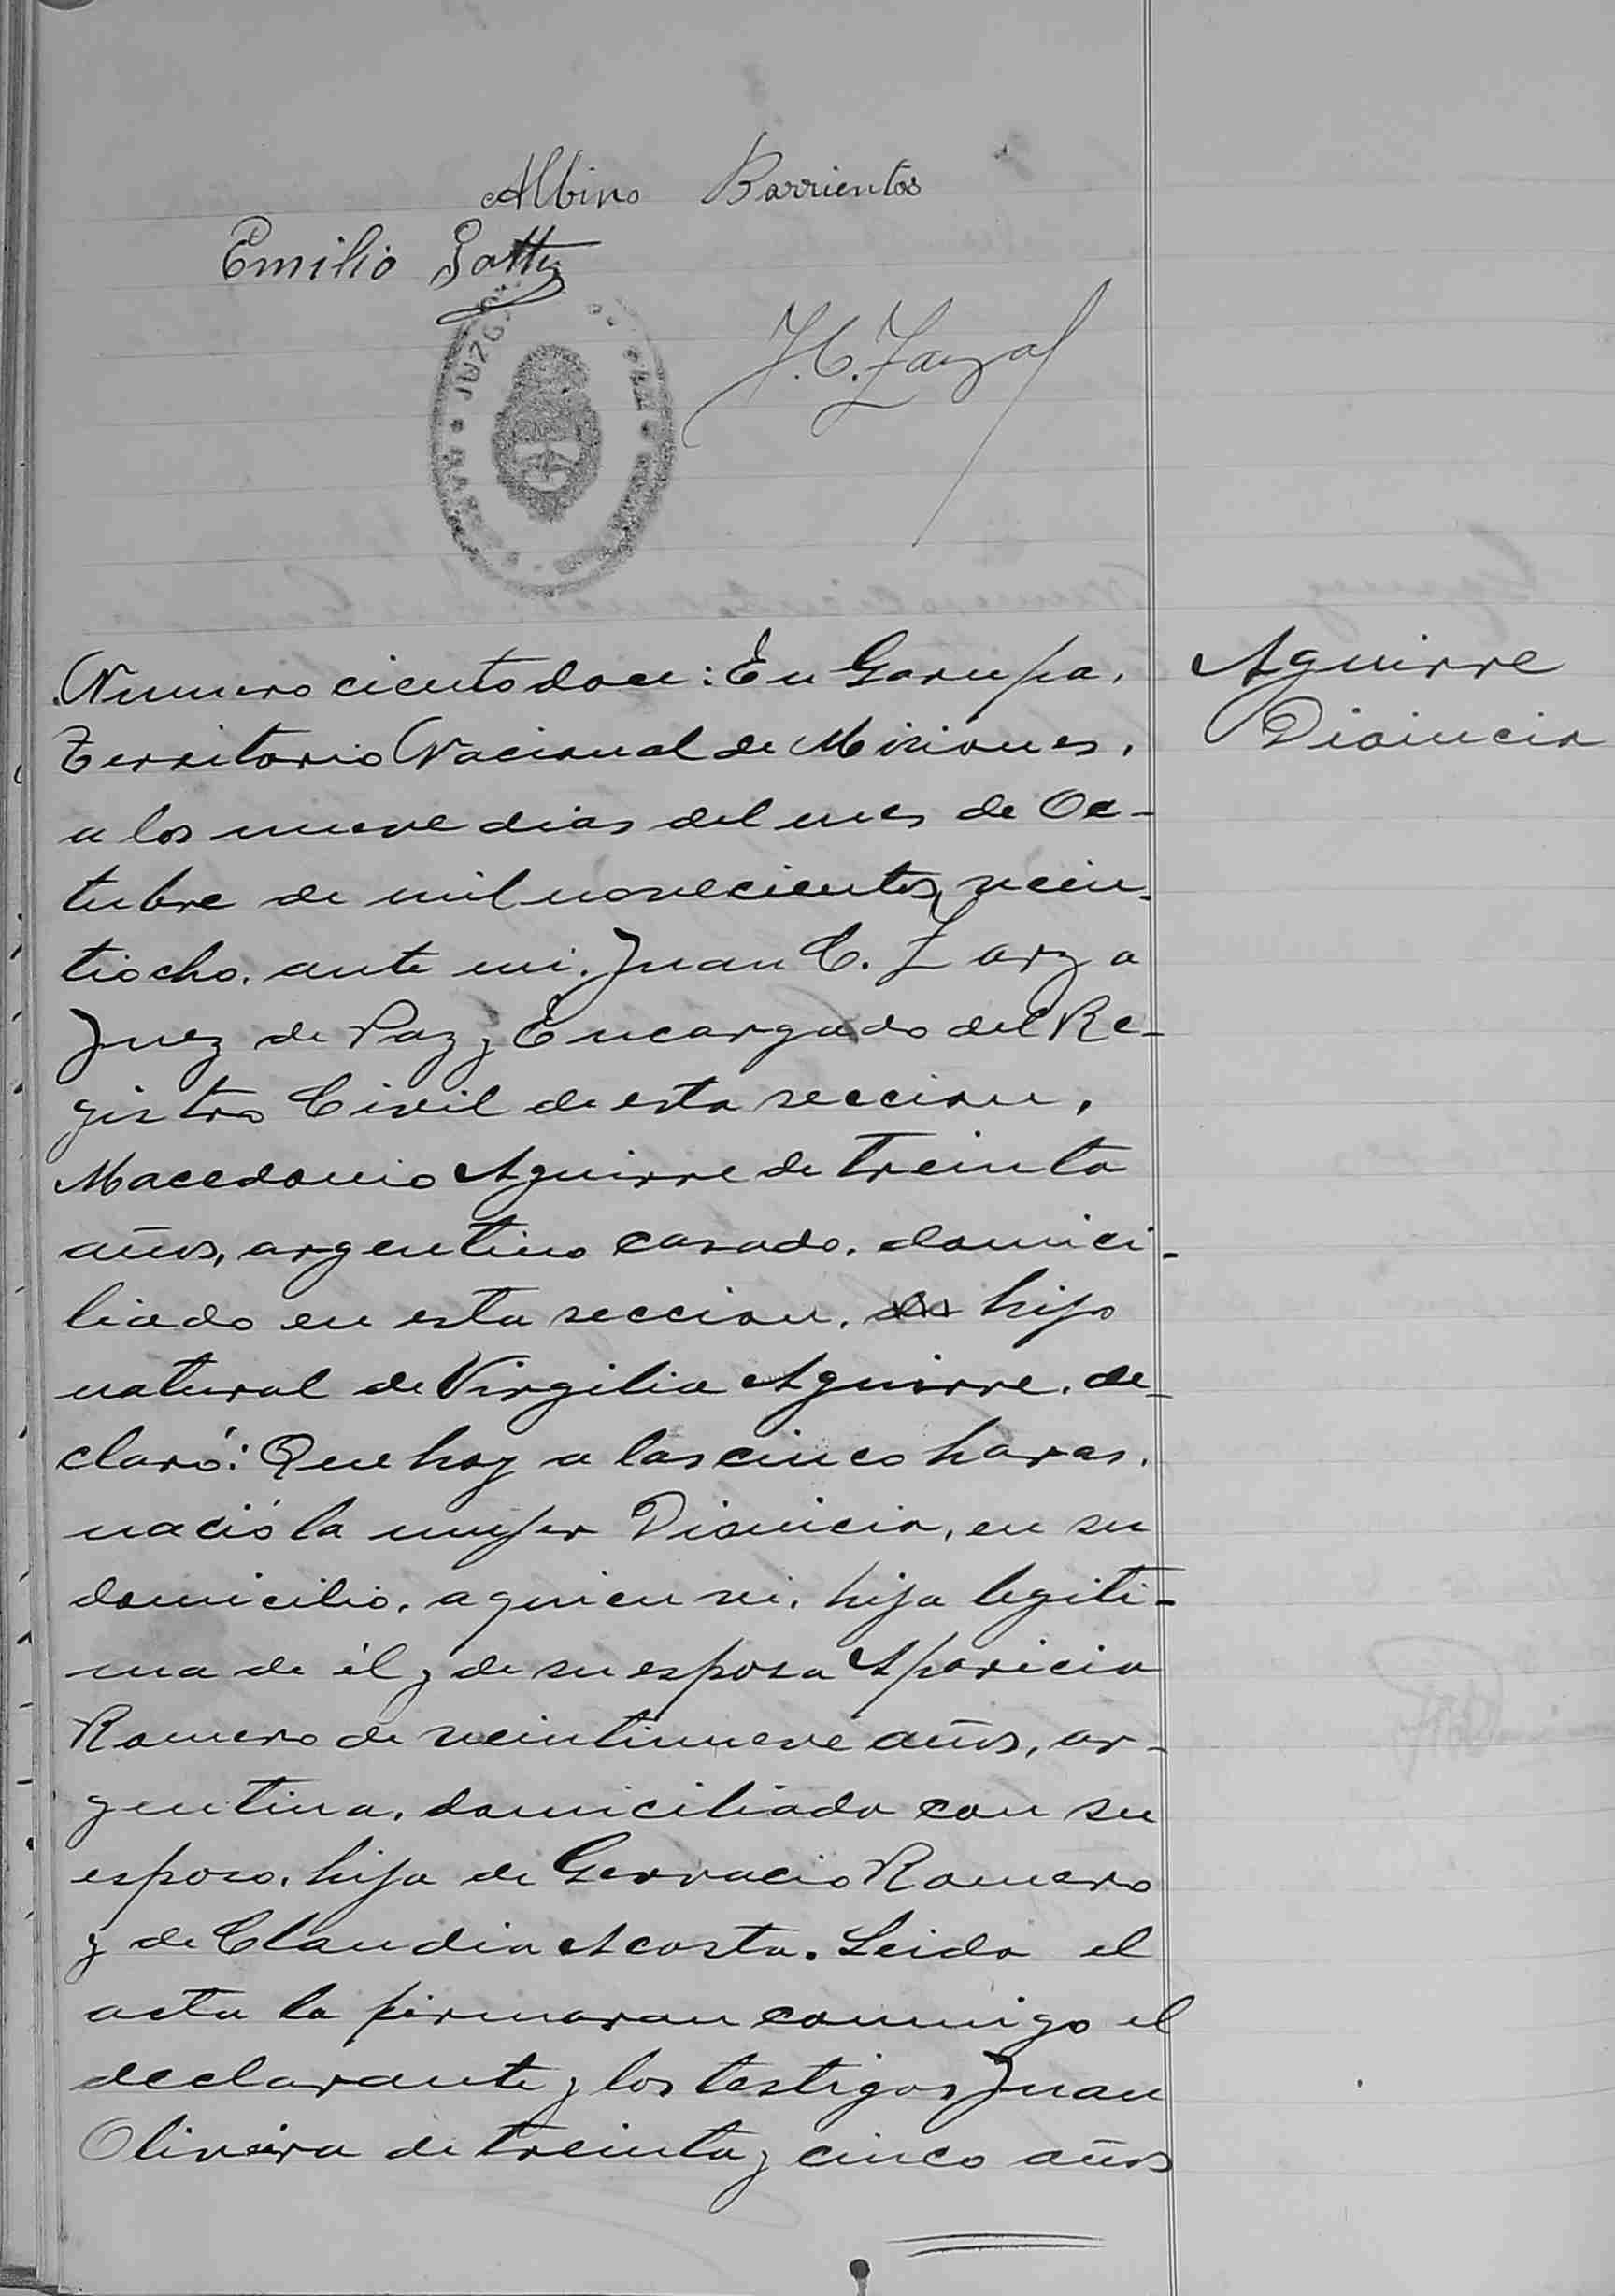 Albino Barrientos
Emilio Gatty
J. C. Zarza
JUZG
Numero ciento doce: En Garupa, Aguirre
Territorio Nacional de Misiones, Dionicia
a los nueve dias del mes de Oc-
tubre de mil novecientos vein-
tiocho, ante mi, Juan C. Zarza
Juez de Paz y Encargado del Re-
gistro Civil de esta seccion,
Macedonio Aguirre de treinta
años, argentino casado, domici-
liado en esta seccion, hijo
natural de Virgilia Aguirre, de-
claró: Que hoy a las cinco horas,
nació la mujer Dionicia, en su
domicilio, a quien vi, hija legiti-
ma de él y de su esposa Aparicia
Romero de veintinueve años, ar-
gentina, domiciliada con su
esposo, hija de Gervacio Romero
y de Claudia Acosta. Leida el
acta la firmaran conmigo el
declarante y los testigos Juan
Oliveira de treinta y cinco años